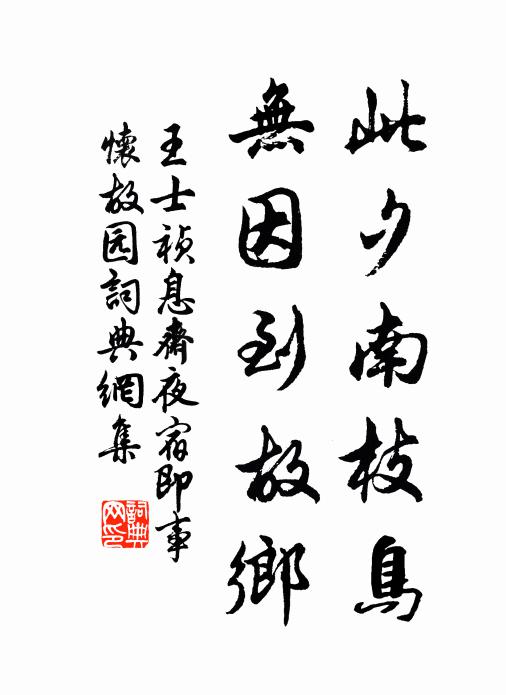 此夕南枝鳥
無因到故鄉
王士禎息齋夜宿即事
懷故园詞典網集
詞典网印